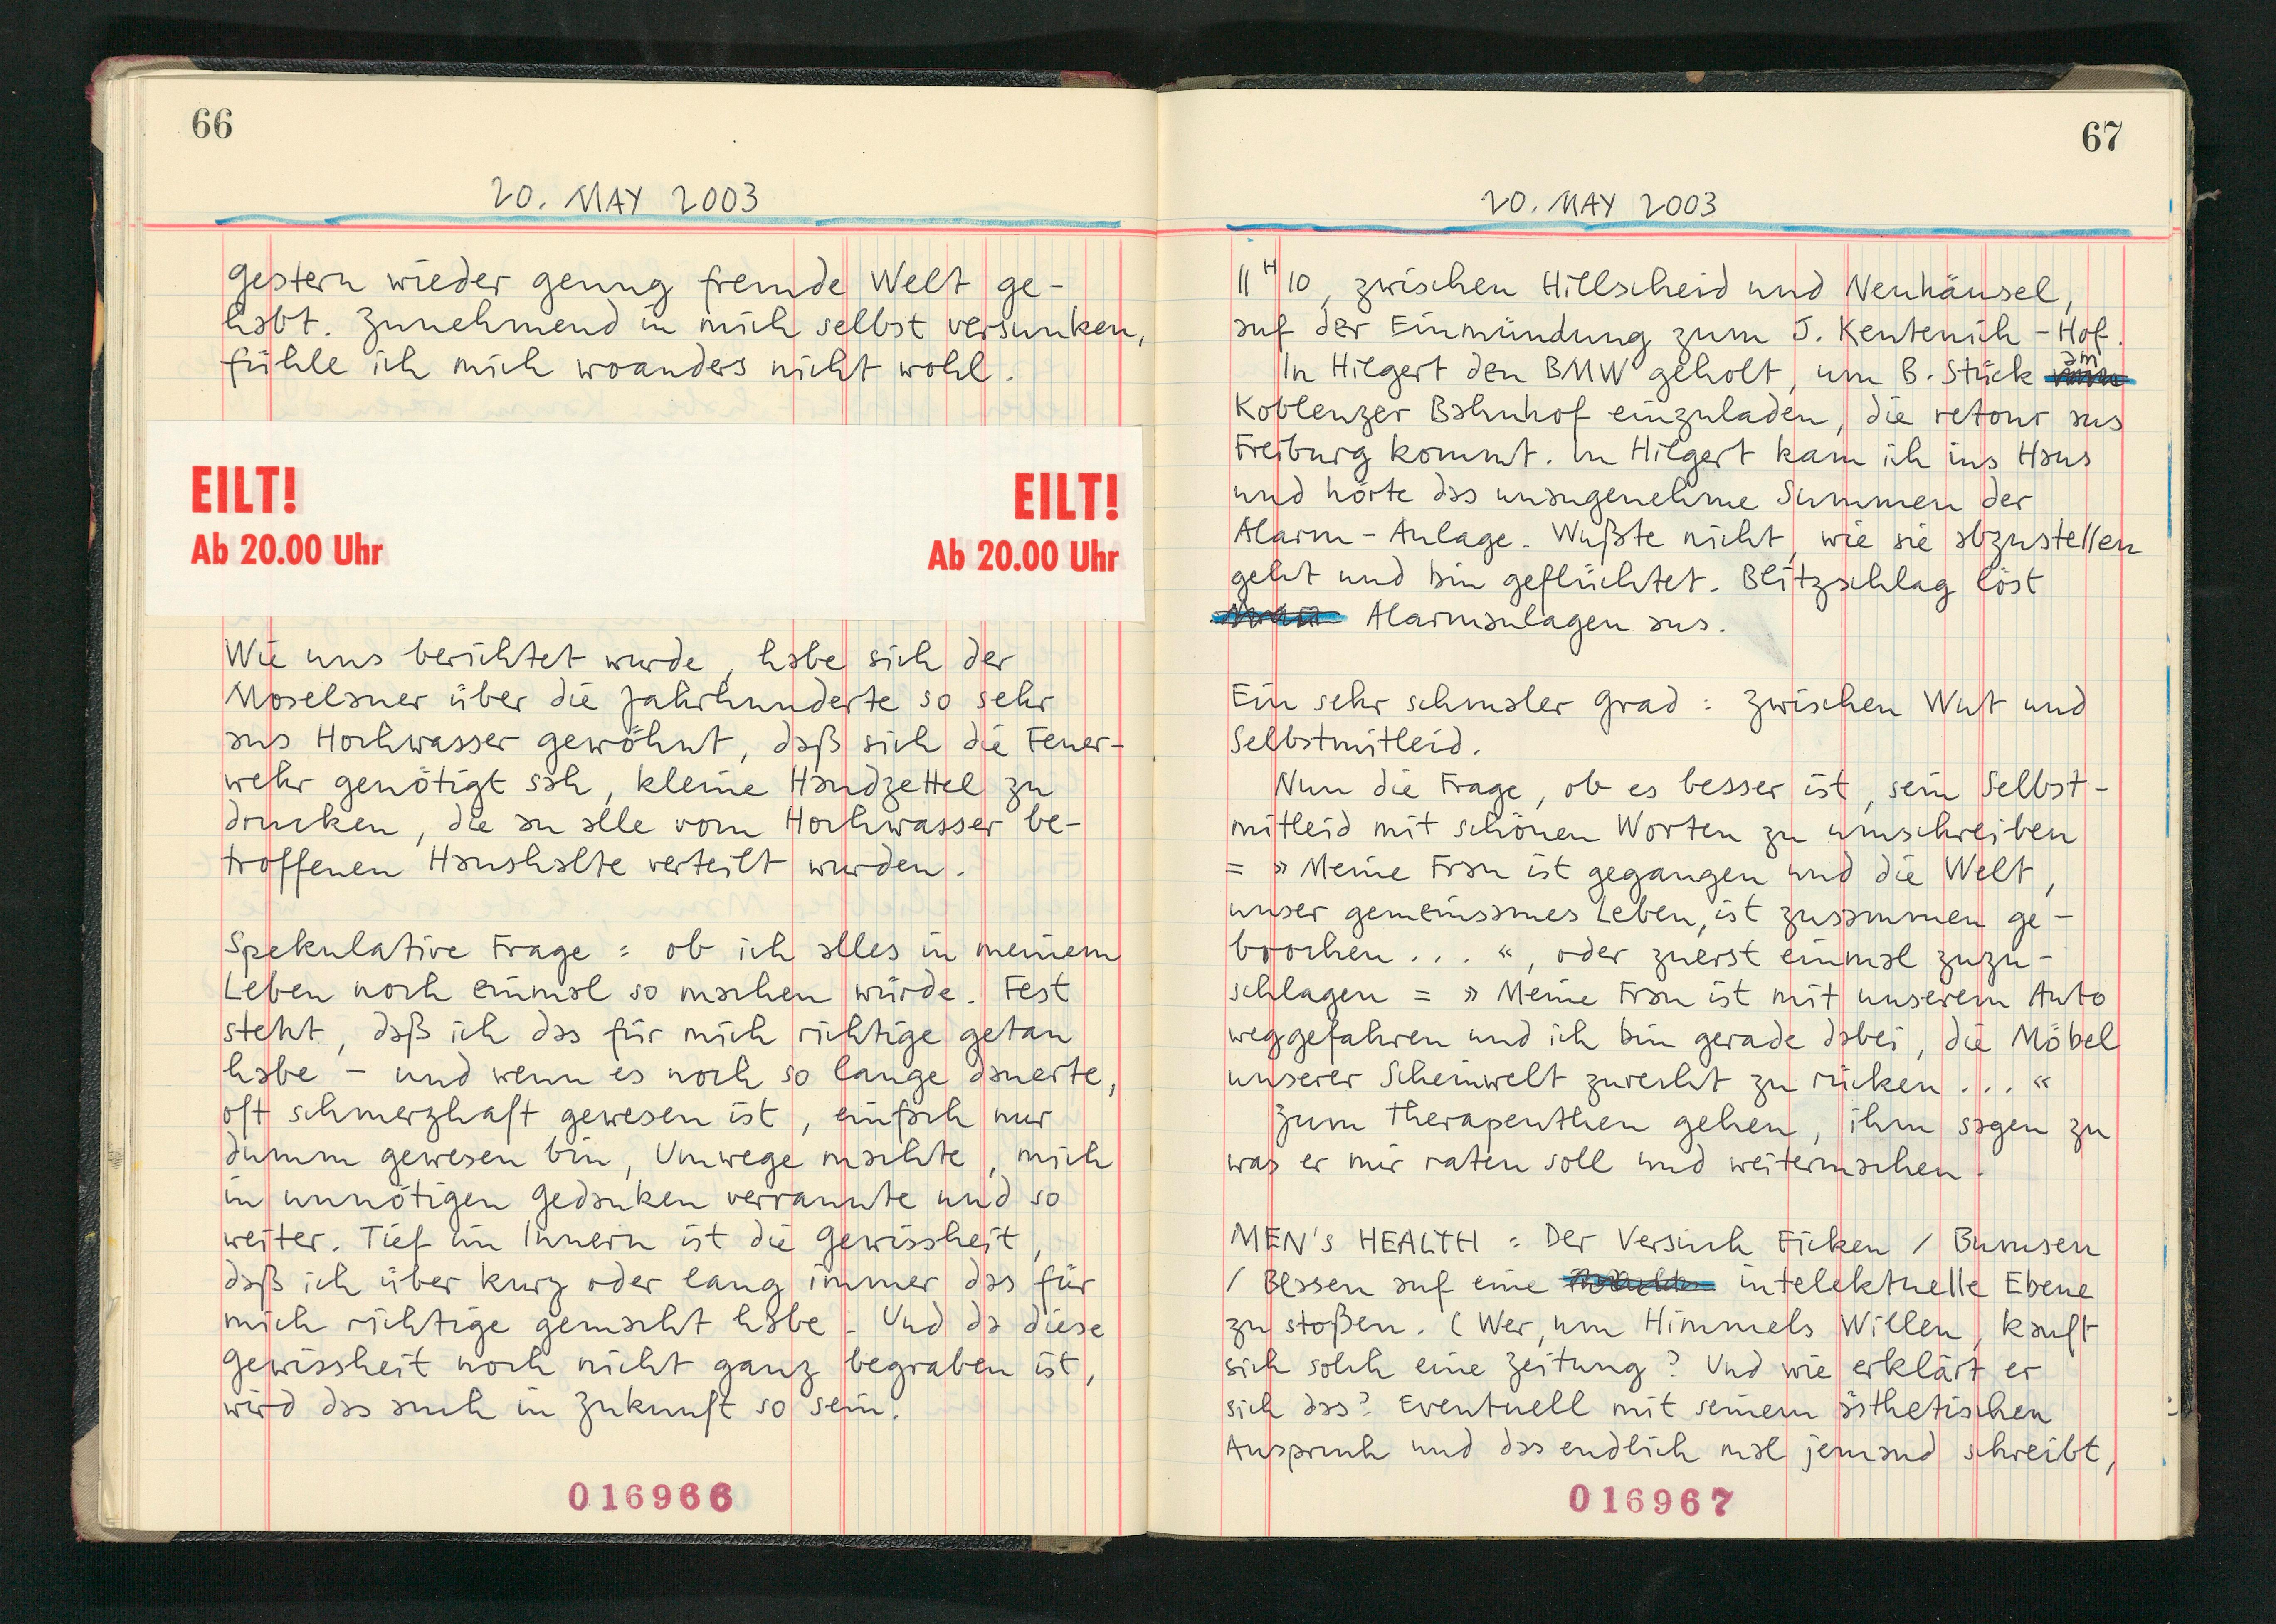 66
20. MAY 2003
gestern wieder genug fremde Welt ge-
habt. Zunehmend in mich selbst versunken,
fühle ich mich woanders nicht wohl.
EILT! EILT!
Ab 20.00 Uhr Ab 20.00 Uhr
Wie uns berichtet wurde, habe sich der
Moselaner über die Jahrhunderte so sehr
ans Hochwasser gewöhnt, daß sich die Feuer-
wehr genötigt sah, kleine Handzettel zu
drucken, die an alle vom Hochwasser be-
troffenen Haushalte verteilt wurden.
Spekulative Frage: ob ich alles in meinem
Leben noch einmal so machen würde. Fest
steht, daß ich das für mich richtige getan
habe – und wenn es noch so lange dauerte,
oft schmerzhaft gewesen ist, einfach nur
dumm gewesen bin, Umwege machte, mich
in unnötigen Gedanken verrannte und so
weiter. Tief im Innern ist die Gewissheit,
daß ich über kurz oder lang immer das für
mich richtige gemacht habe. Und da diese
Gewissheit noch nicht ganz begraben ist,
wird das auch in Zukunft so sein.
016966
67
20. MAY 2003
11 H 10, zwischen Hillscheid und Neuhäusel,
auf der Einmündung zum J. Kentenich-Hof.
In Hilgert den BMW geholt, um B. Stück am
Koblenzer Bahnhof einzuladen, die retour aus
Freiburg kommt. In Hilgert kam ich ins Haus
und hörte das unangenehme Summen der
Alarm-Anlage. Wußte nicht, wie sie abzustellen
geht und bin geflüchtet. Blitzschlag löst
Alarmanlagen aus.
Ein sehr schmaler Grad: zwischen Wut und
Selbstmitleid.
Nun die Frage, ob es besser ist, sein Selbst-
mitleid mit schönen Worten zu umschreiben
= » Meine Frau ist gegangen und die Welt,
unser gemeinsames Leben, ist zusammen ge-
broochen . . . «, oder zuerst einmal zuzu-
schlagen = » Meine Frau ist mit unserem Auto
weggefahren und ich bin gerade dabei, die Möbel
unserer Scheinwelt zurecht zu rücken . . . «
Zum Therapeuthen gehen, ihm sagen zu
was er mir raten soll und weitermachen.
MEN'S HEALTH: Der Versuch Ficken / Bumsen
/ Blasen auf eine intelektuelle Ebene
zu stoßen. (Wer, um Himmels Willen, kauft
sich solch eine Zeitung? Und wie erklärt er
sich das? Eventuell mit seinem ästhetischen
Anspruch und das endlich mal jemand schreibt,
016967